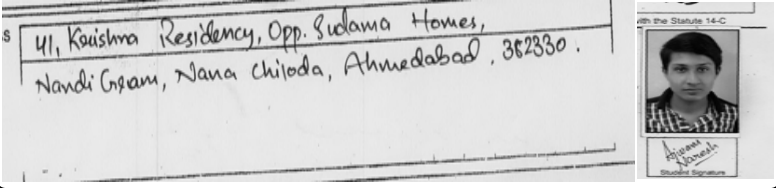 s
41, Krishna Residency, Opp. Sudama Homes,
Nandi Gram, Nana Chiloda, Ahmedabad, 382330.
ith the Statute 14-C
Naresh
Student Signature